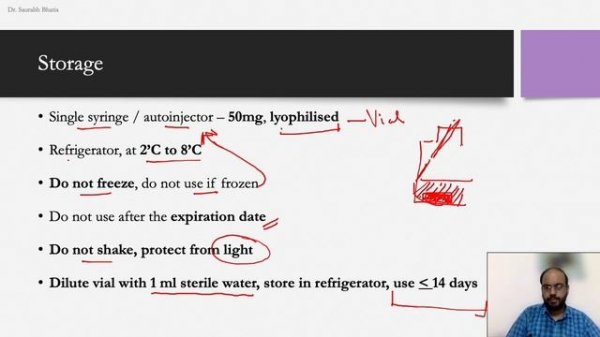 Dr. Saurabh Bhatia
Storage
• Single syringe / autoinjector – 50mg, lyophilised – Vial
• Refrigerator, at 2’C to 8’C
• Do not freeze, do not use if frozen
• Do not use after the expiration date
• Do not shake, protect from light
• Dilute vial with 1 ml sterile water, store in refrigerator, use < 14 days